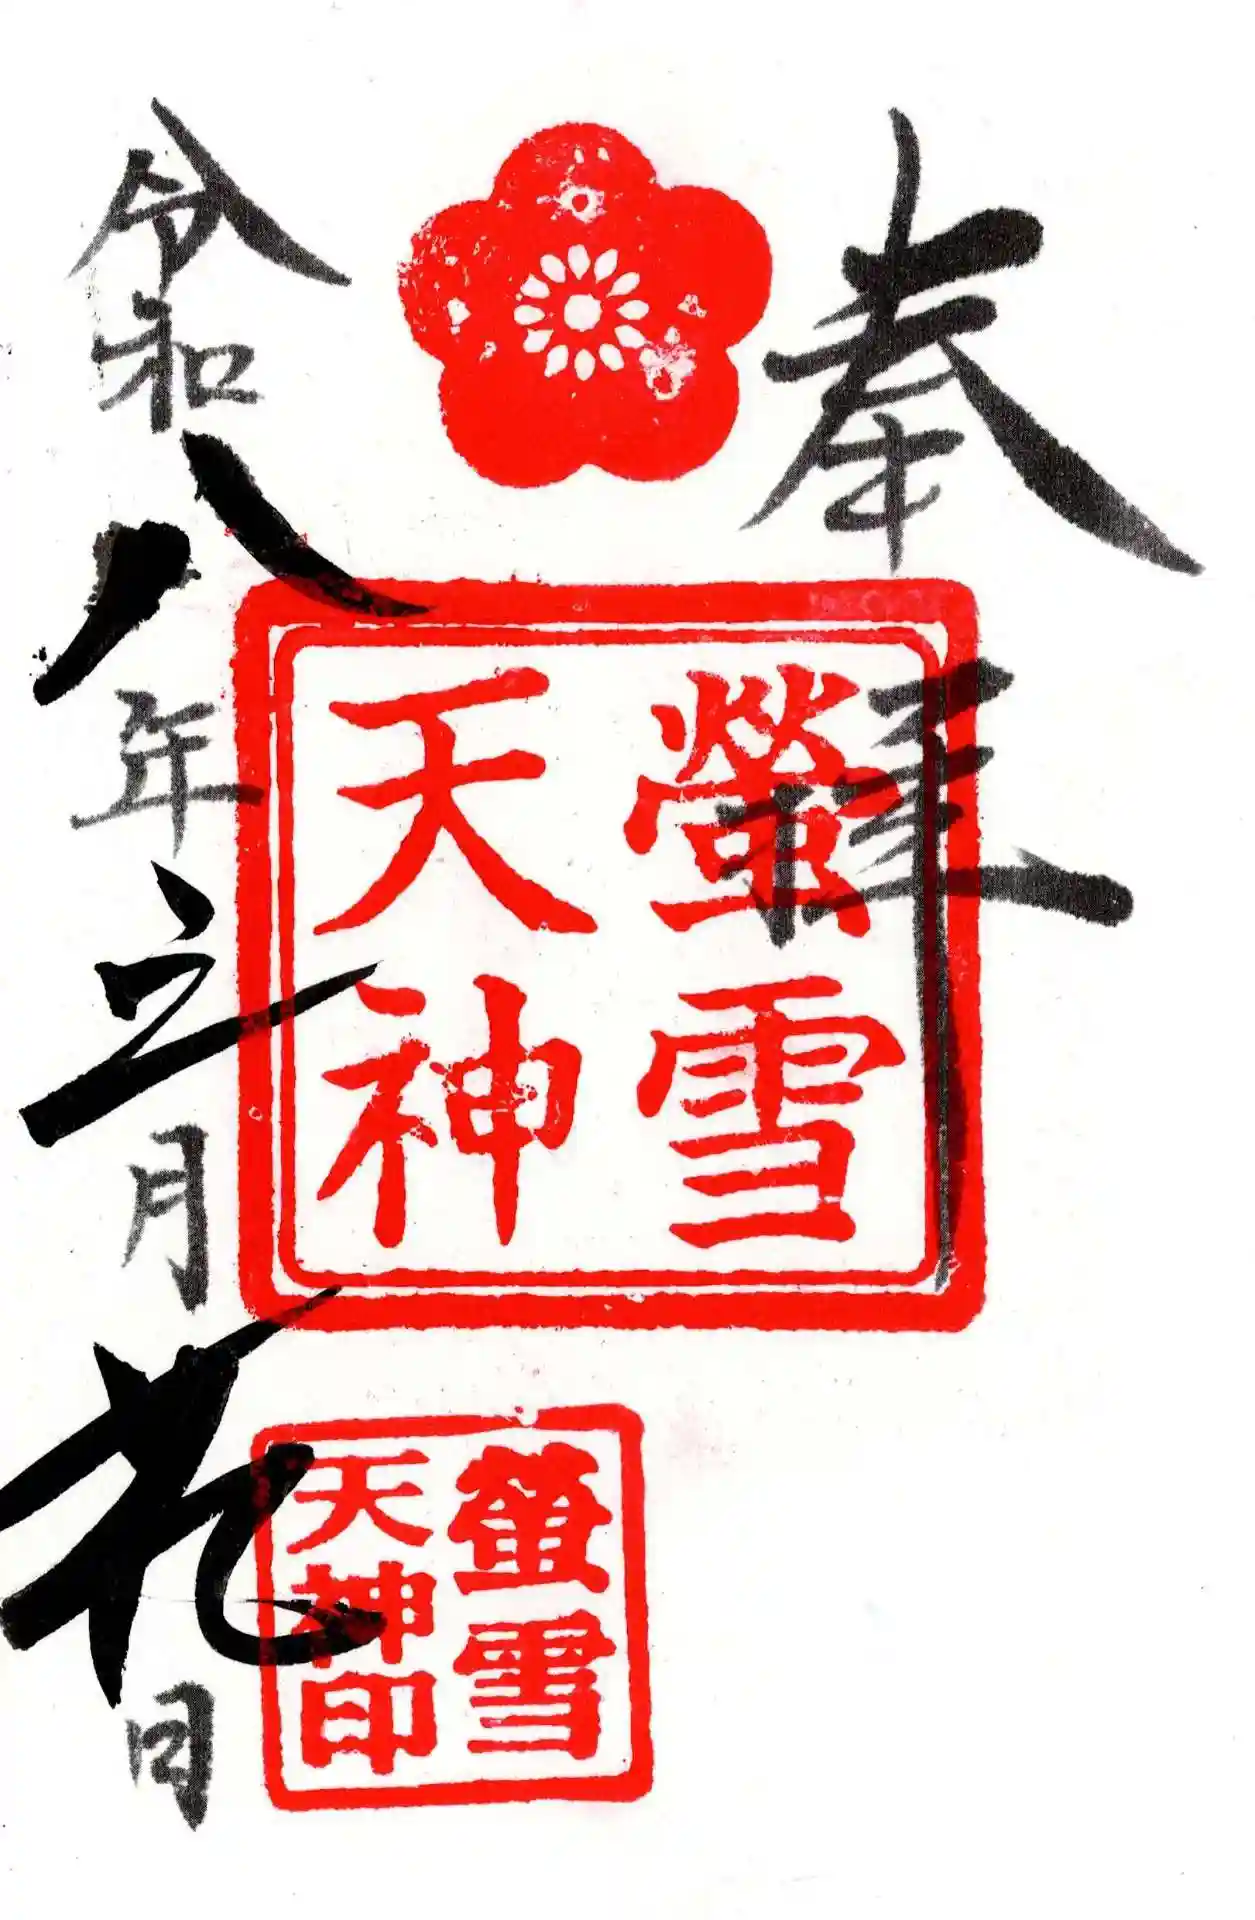 奉拝
螢雪
天神
螢雪
天神印
令和八年
月
日